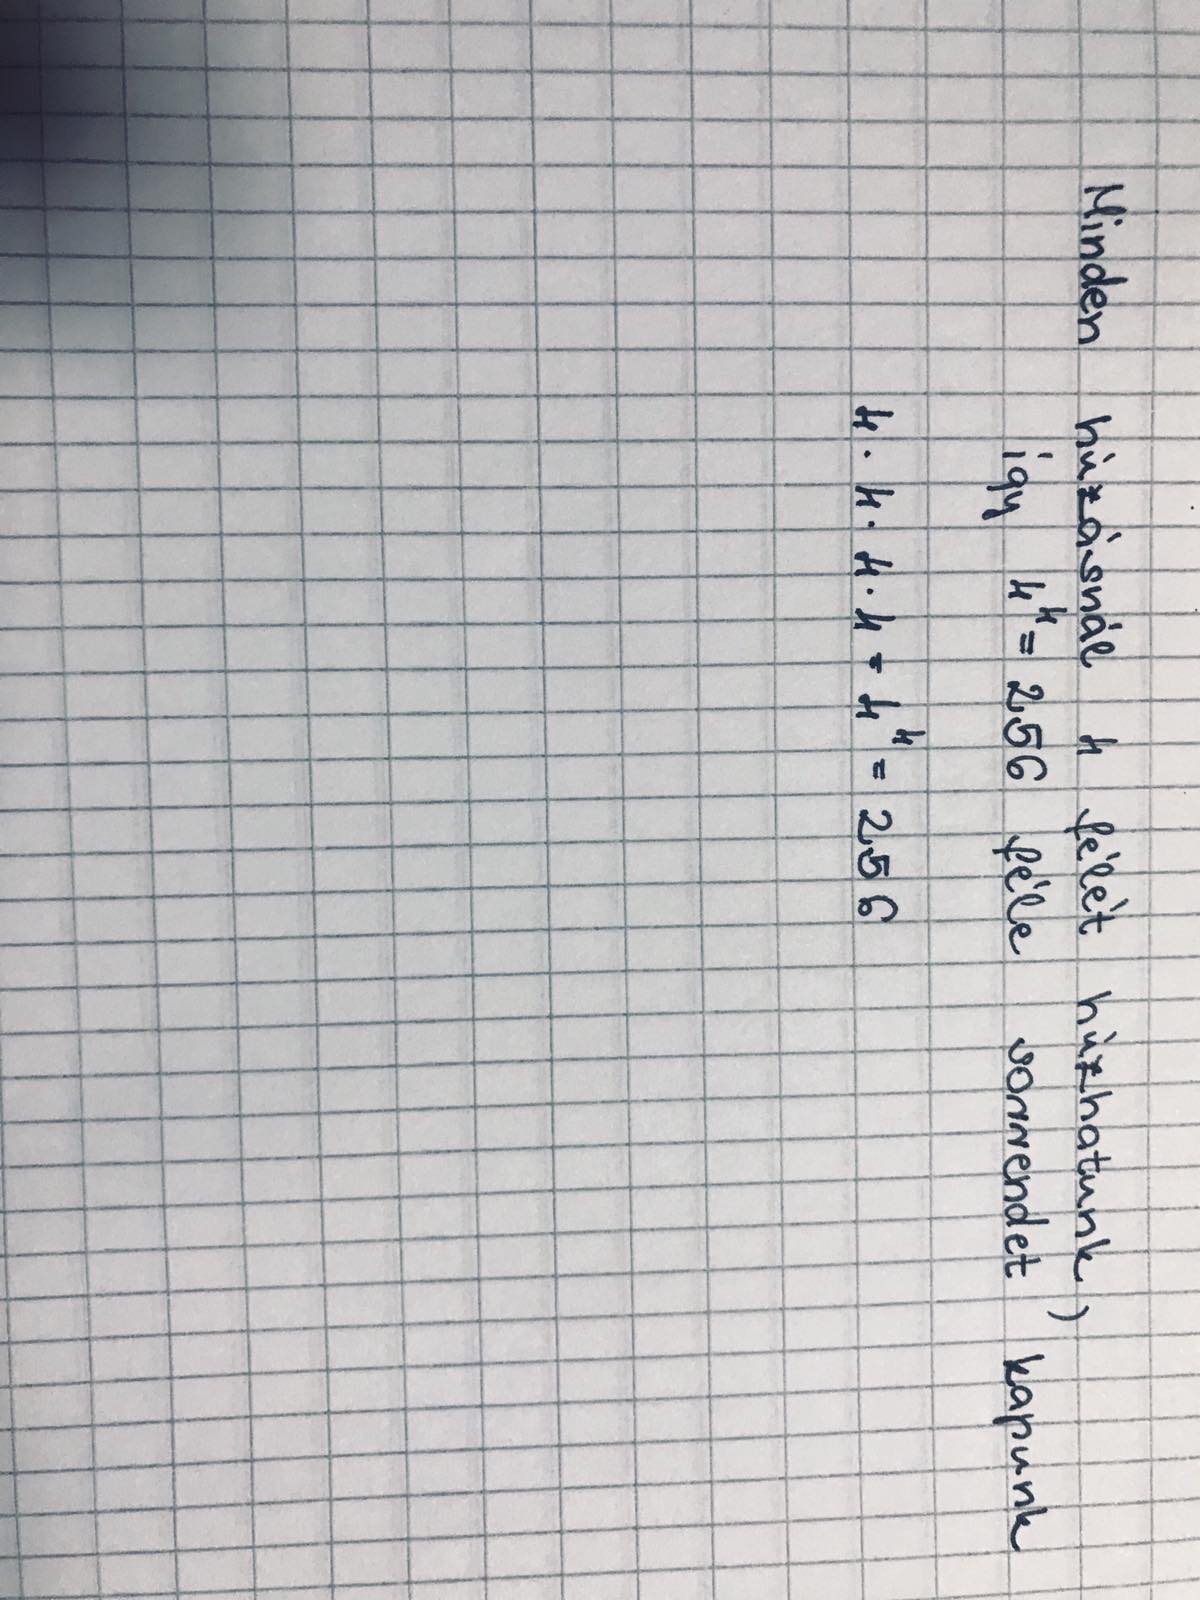 Minden húzásnál 4 félét húzhatunk,
így 4⁴ = 256 féle sorrendet kapunk
4 · 4 · 4 · 4 = 4⁴ = 256